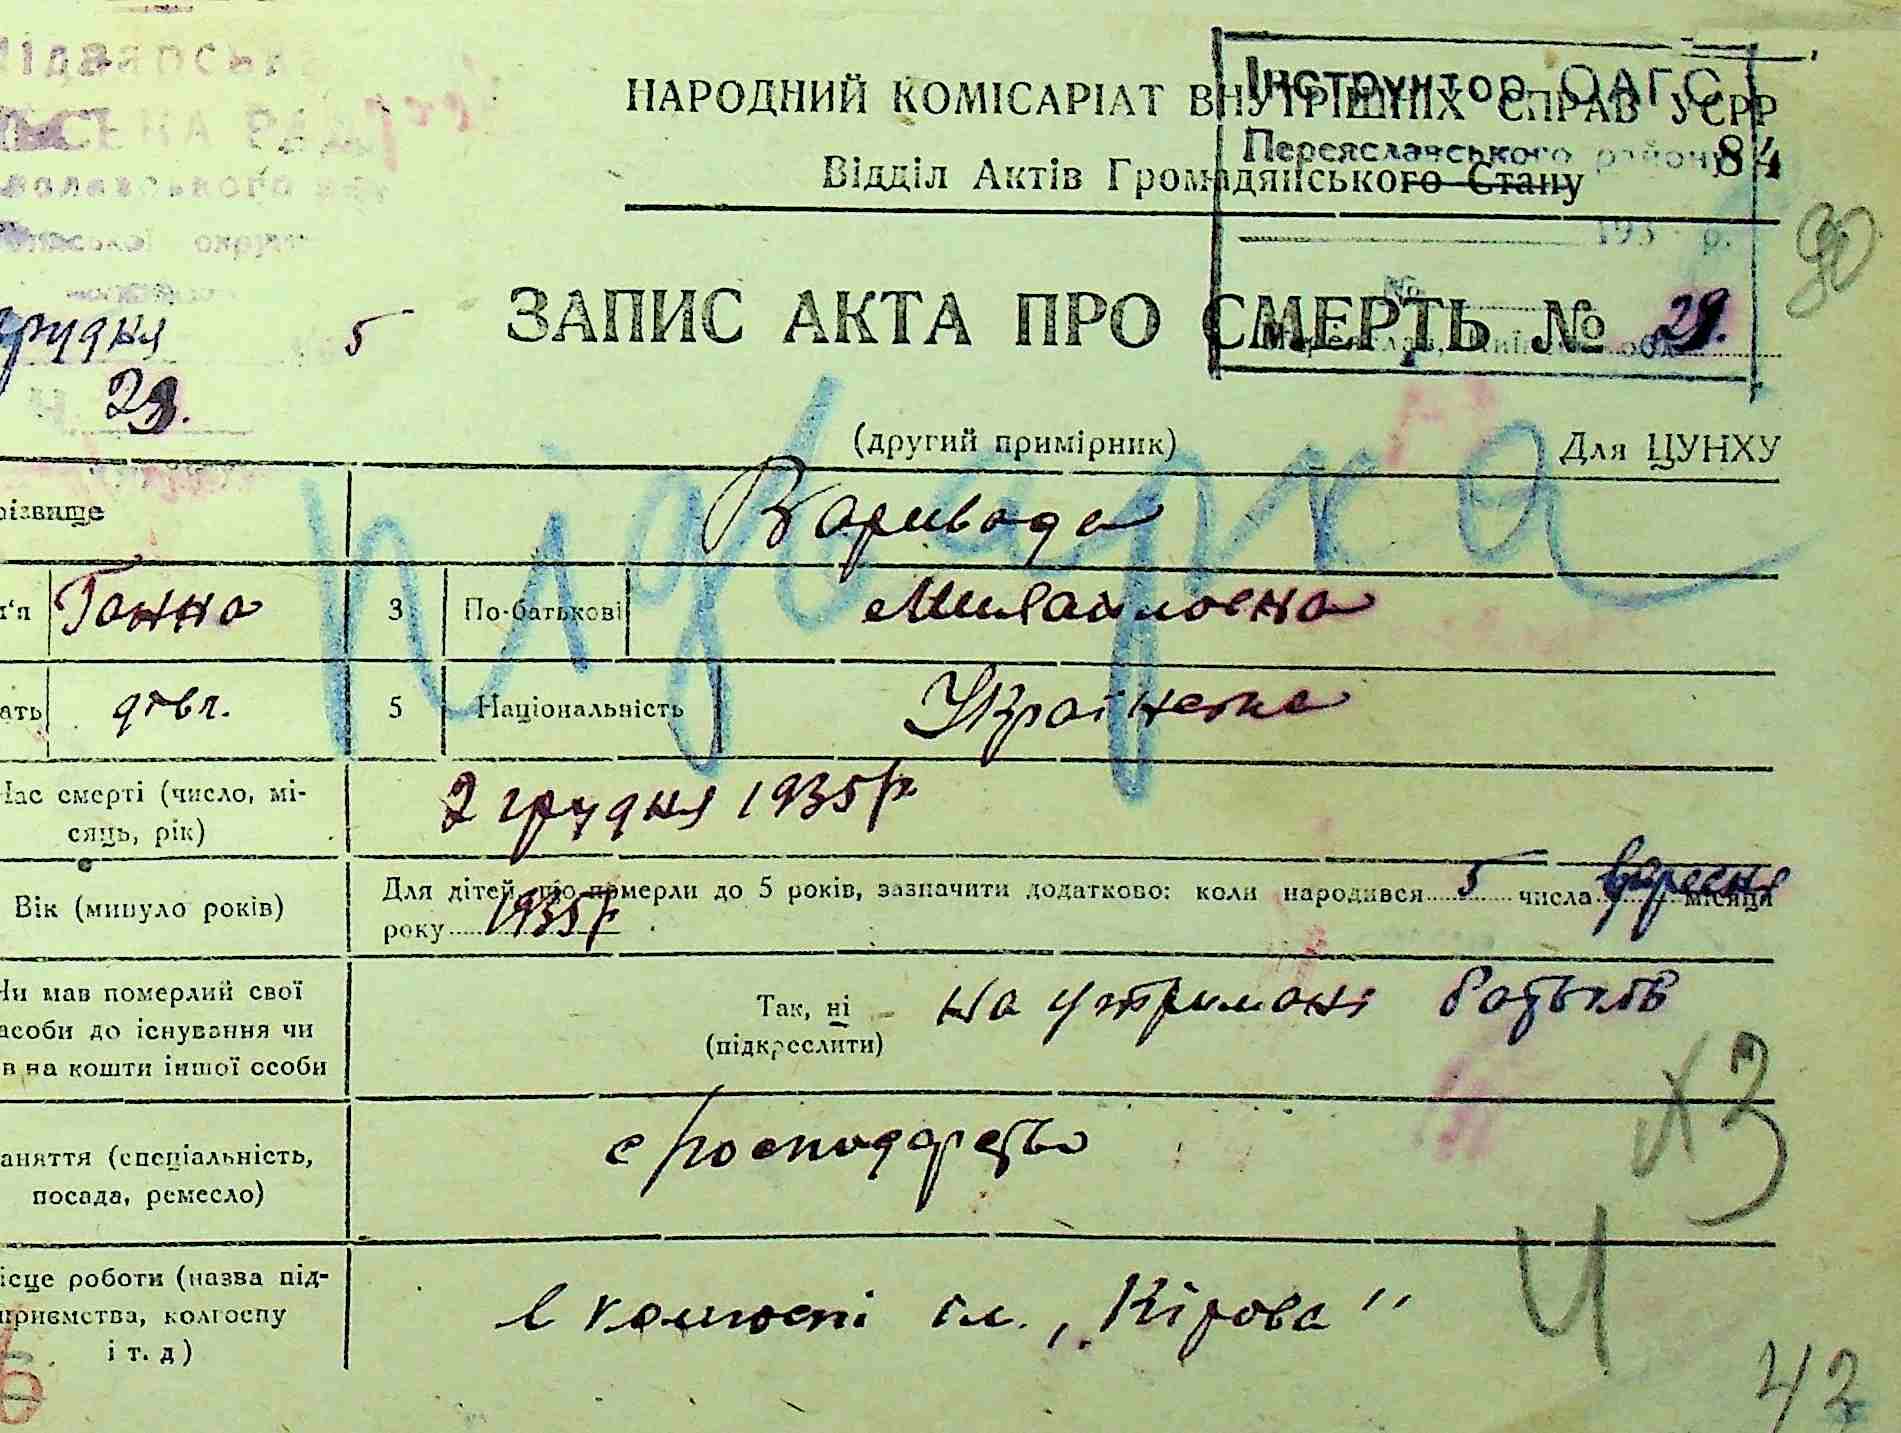 НАРОДНИЙ КОМІСАРІАТ ВНУТРІШНІХ СПРАВ УСРР
Інструктор ОАГС
Відділ Актів Громадянського Стану
Переяславського району
84
193 р.
90
№
грудня 5
ЗАПИС АКТА ПРО СМЕРТЬ № 29.
29.
(другий примірник) Для ЦУНХУ
підварка
різвище Варивода
м'я Ганна 3 По-батькові Михайловна
ать 5 Національність Українка
Час смерті (число, мі-
сяць, рік)
2 грудня 1935 р
Вік (минуло років)
Для дітей, що померли до 5 років, зазначити додатково: коли народився 5 числа вересня місяця
року 1935 р
Чи мав померлий свої
асоби до існування чи
в на кошти іншої особи
Так, ні
(підкреслити)
на утримані батьків
аняття (спеціальність,
посада, ремесло)
с господарство
х3
ісце роботи (назва під-
приємства, колгоспу
і т. д)
в колгоспі ім. „Кірова"
Ч
42